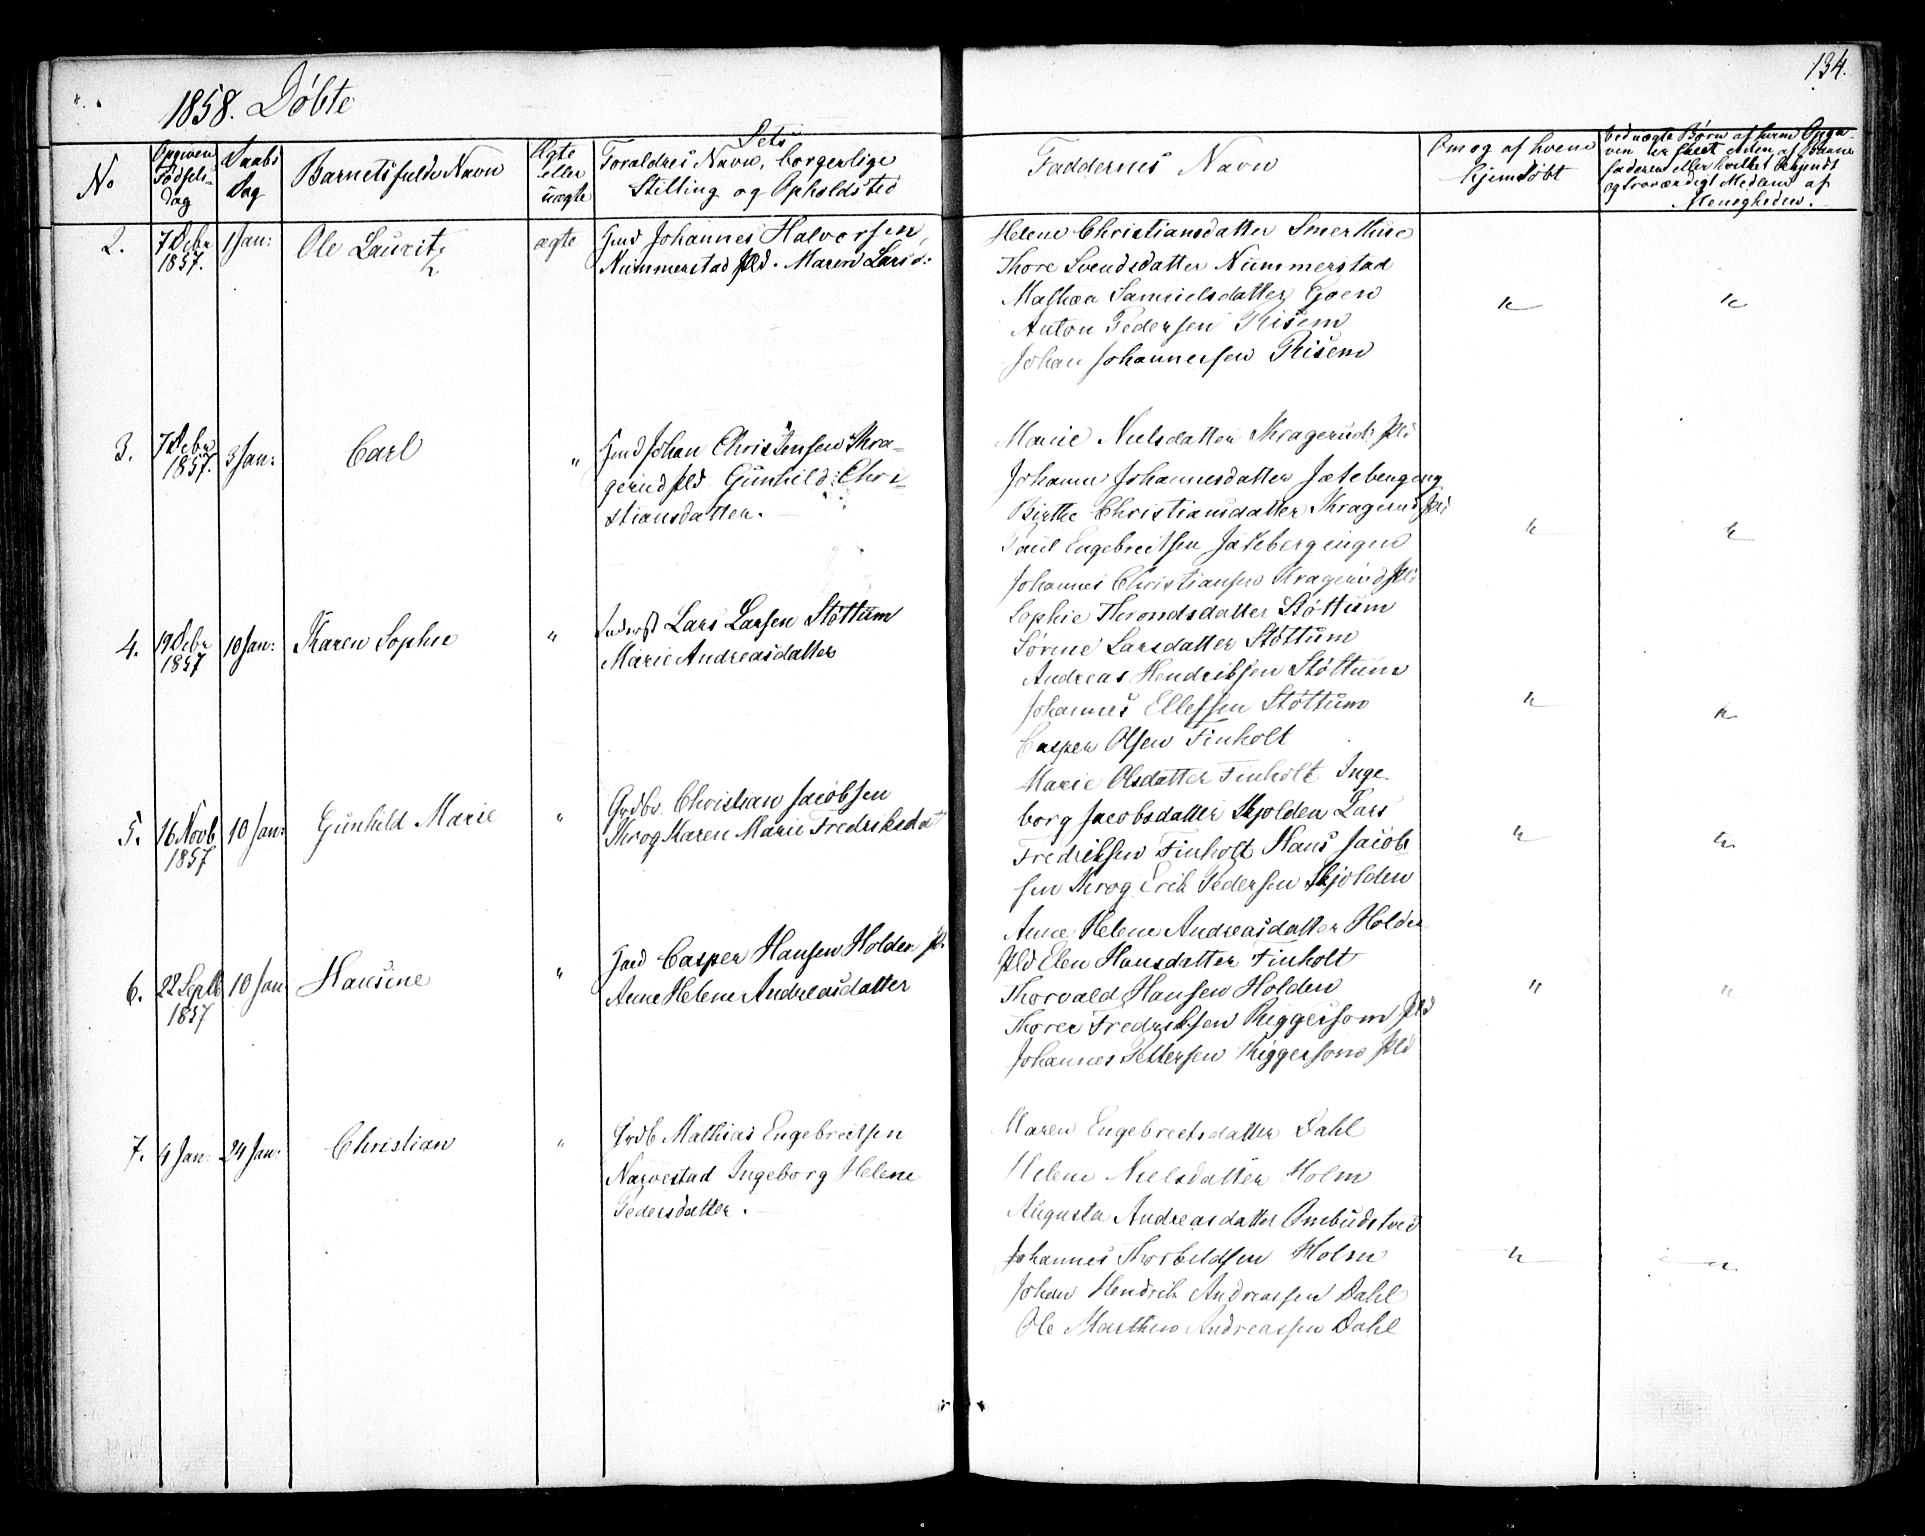 134.
1858. Døbte
No
Opgiven Fødselsdag
Daabs Dag
Barnets fulde Navn
Ægte eller uægte
Dets Forældres Navn, borgerlige
Stilling og Opholdsted
Faddernes Navn
Om og af hvem
hjemdøbt
Ved uægte Børn af hvem Opga-
ven er skeet enten af Barne-
faderen eller hvilket bekjendt
og troværdigt Medlem af
Menigheden.
2. 7 Debr 1857. 1 Jan: Ole Lauritz ægte
Gmd Johannes Halvorsen
Nummerstad pld. Maren Larsd:
Helene Christiansdatter Smerthue
Thore Svendsdatter Nummerstad
Mathea Samuelsdatter Goen
Anton Pedersen Risem
Johan Johannesen Risem
3. 7 Debr 1857. 3 Jan: Carl "
Gmd Johan Christensen Kra-
gerud pld Gunhild Chri-
stiansdatter.
Marie Nielsdatter Kragerud pld
Johanne Johannesdatter Jatebergeng
Birthe Christiansdatter Kragerud pld
Poul Engebretsen Jatebergengen
Johannes Christiansen Kragerud pld
4. 19 Debr 1857 10 Jan: Karen Sophie "
Inderst Lars Larsen Støttum
Marie Andreasdatter
Sophie Throndsdatter Støttum
Sørine Larsdatter Støttum
Andreas Hendriksen Støttum
Johannes Ellefsen Støttum
Casper Olsen Finholt
5. 16 Novb 1857 10 Jan: Gunhild Marie "
Grdbr. Christian Jacobsen
Krog Karen Marie Fredriksdat
Marie Olsdatter Finholt Inge-
borg Jacobsdatter Skjolden Lars
Fredriksen Finholt Hans Jacob-
sen Krog Erik Pedersen Skjolden
6. 22 Septb 1857 10 Jan Hansine "
Casper Hansen Holden pl.
Anne Helene Andreasdatter
Anne Helene Andreasdatter Holden
pld Elen Hansdatter Finholt
Thorvald Hansen Holden
Thorer Fredriksen Riggersom pld
Johannes Pettersen Riggersom pld
7. 4 Jan: 24 Jan: Christian "
Grdb Mathias Engebretsen
Narvestad Ingeborg Helene
Pedersdatter.
Maren Engebretsdatter Dahl
Helene Nielsdatter Holm
Augusta Andreasdatter Ombudstved
Johannes Thorkeldsen Holm
Johan Hendrik Andreassen Dahl
Ole Marthin Andreassen Dahl